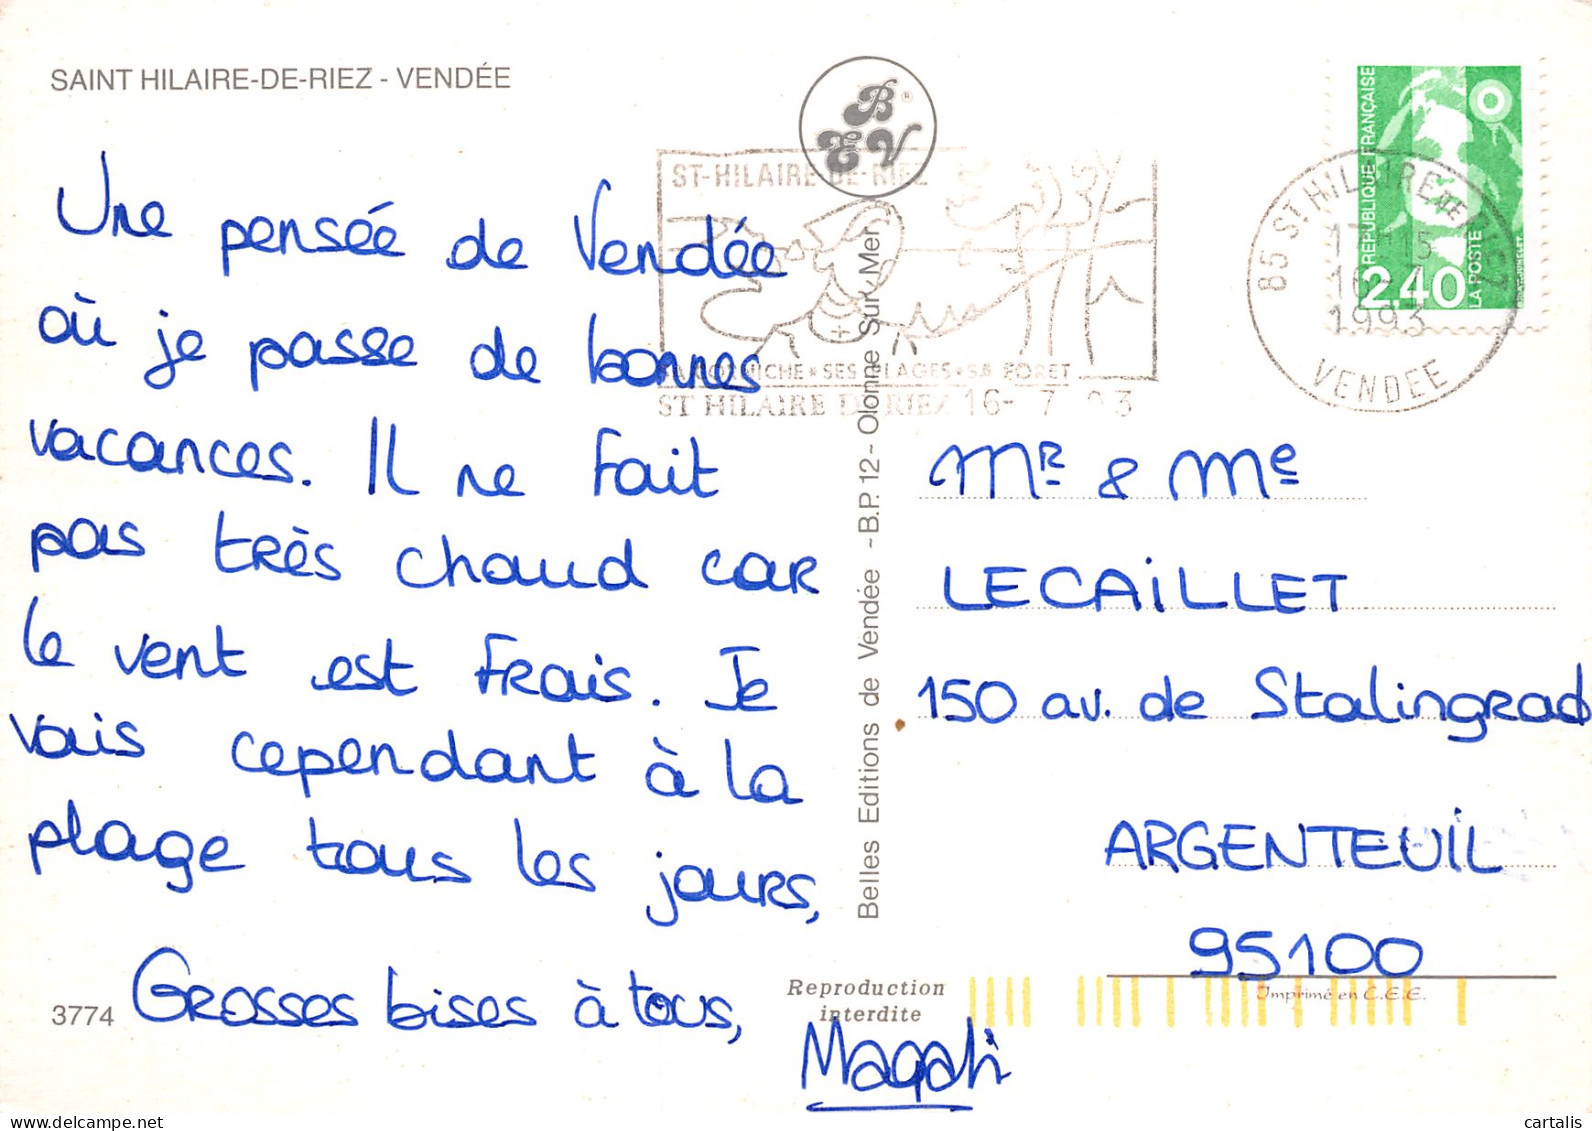 SAINT HILAIRE-DE-RIEZ - VENDÉE
Une pensée de Vendée
où je passe de bonnes
vacances. Il ne fait
pas très chaud car
le vent est frais. Je
vais cependant à la
plage tous les jours,
Grosses bises à tous,
Magali
3774
B E V
ST-HILAIRE-DE-RIEZ
SA CORNICHE • SES PLAGES • SA FORET
ST HILAIRE DE RIEZ 16- 7 93
Belles Editions de Vendée - B.P. 12 - Olonne Sur Mer
RÉPUBLIQUE FRANÇAISE
2,40
LA POSTE
85 ST HILAIRE DE RIEZ
15
16-7
1993
VENDEE
Mr & Me
LECAILLET
150 av. de Stalingrad
ARGENTEUIL
95100
Reproduction
interdite
Imprimé en C.E.E.
cartalis
www.delcampe.net